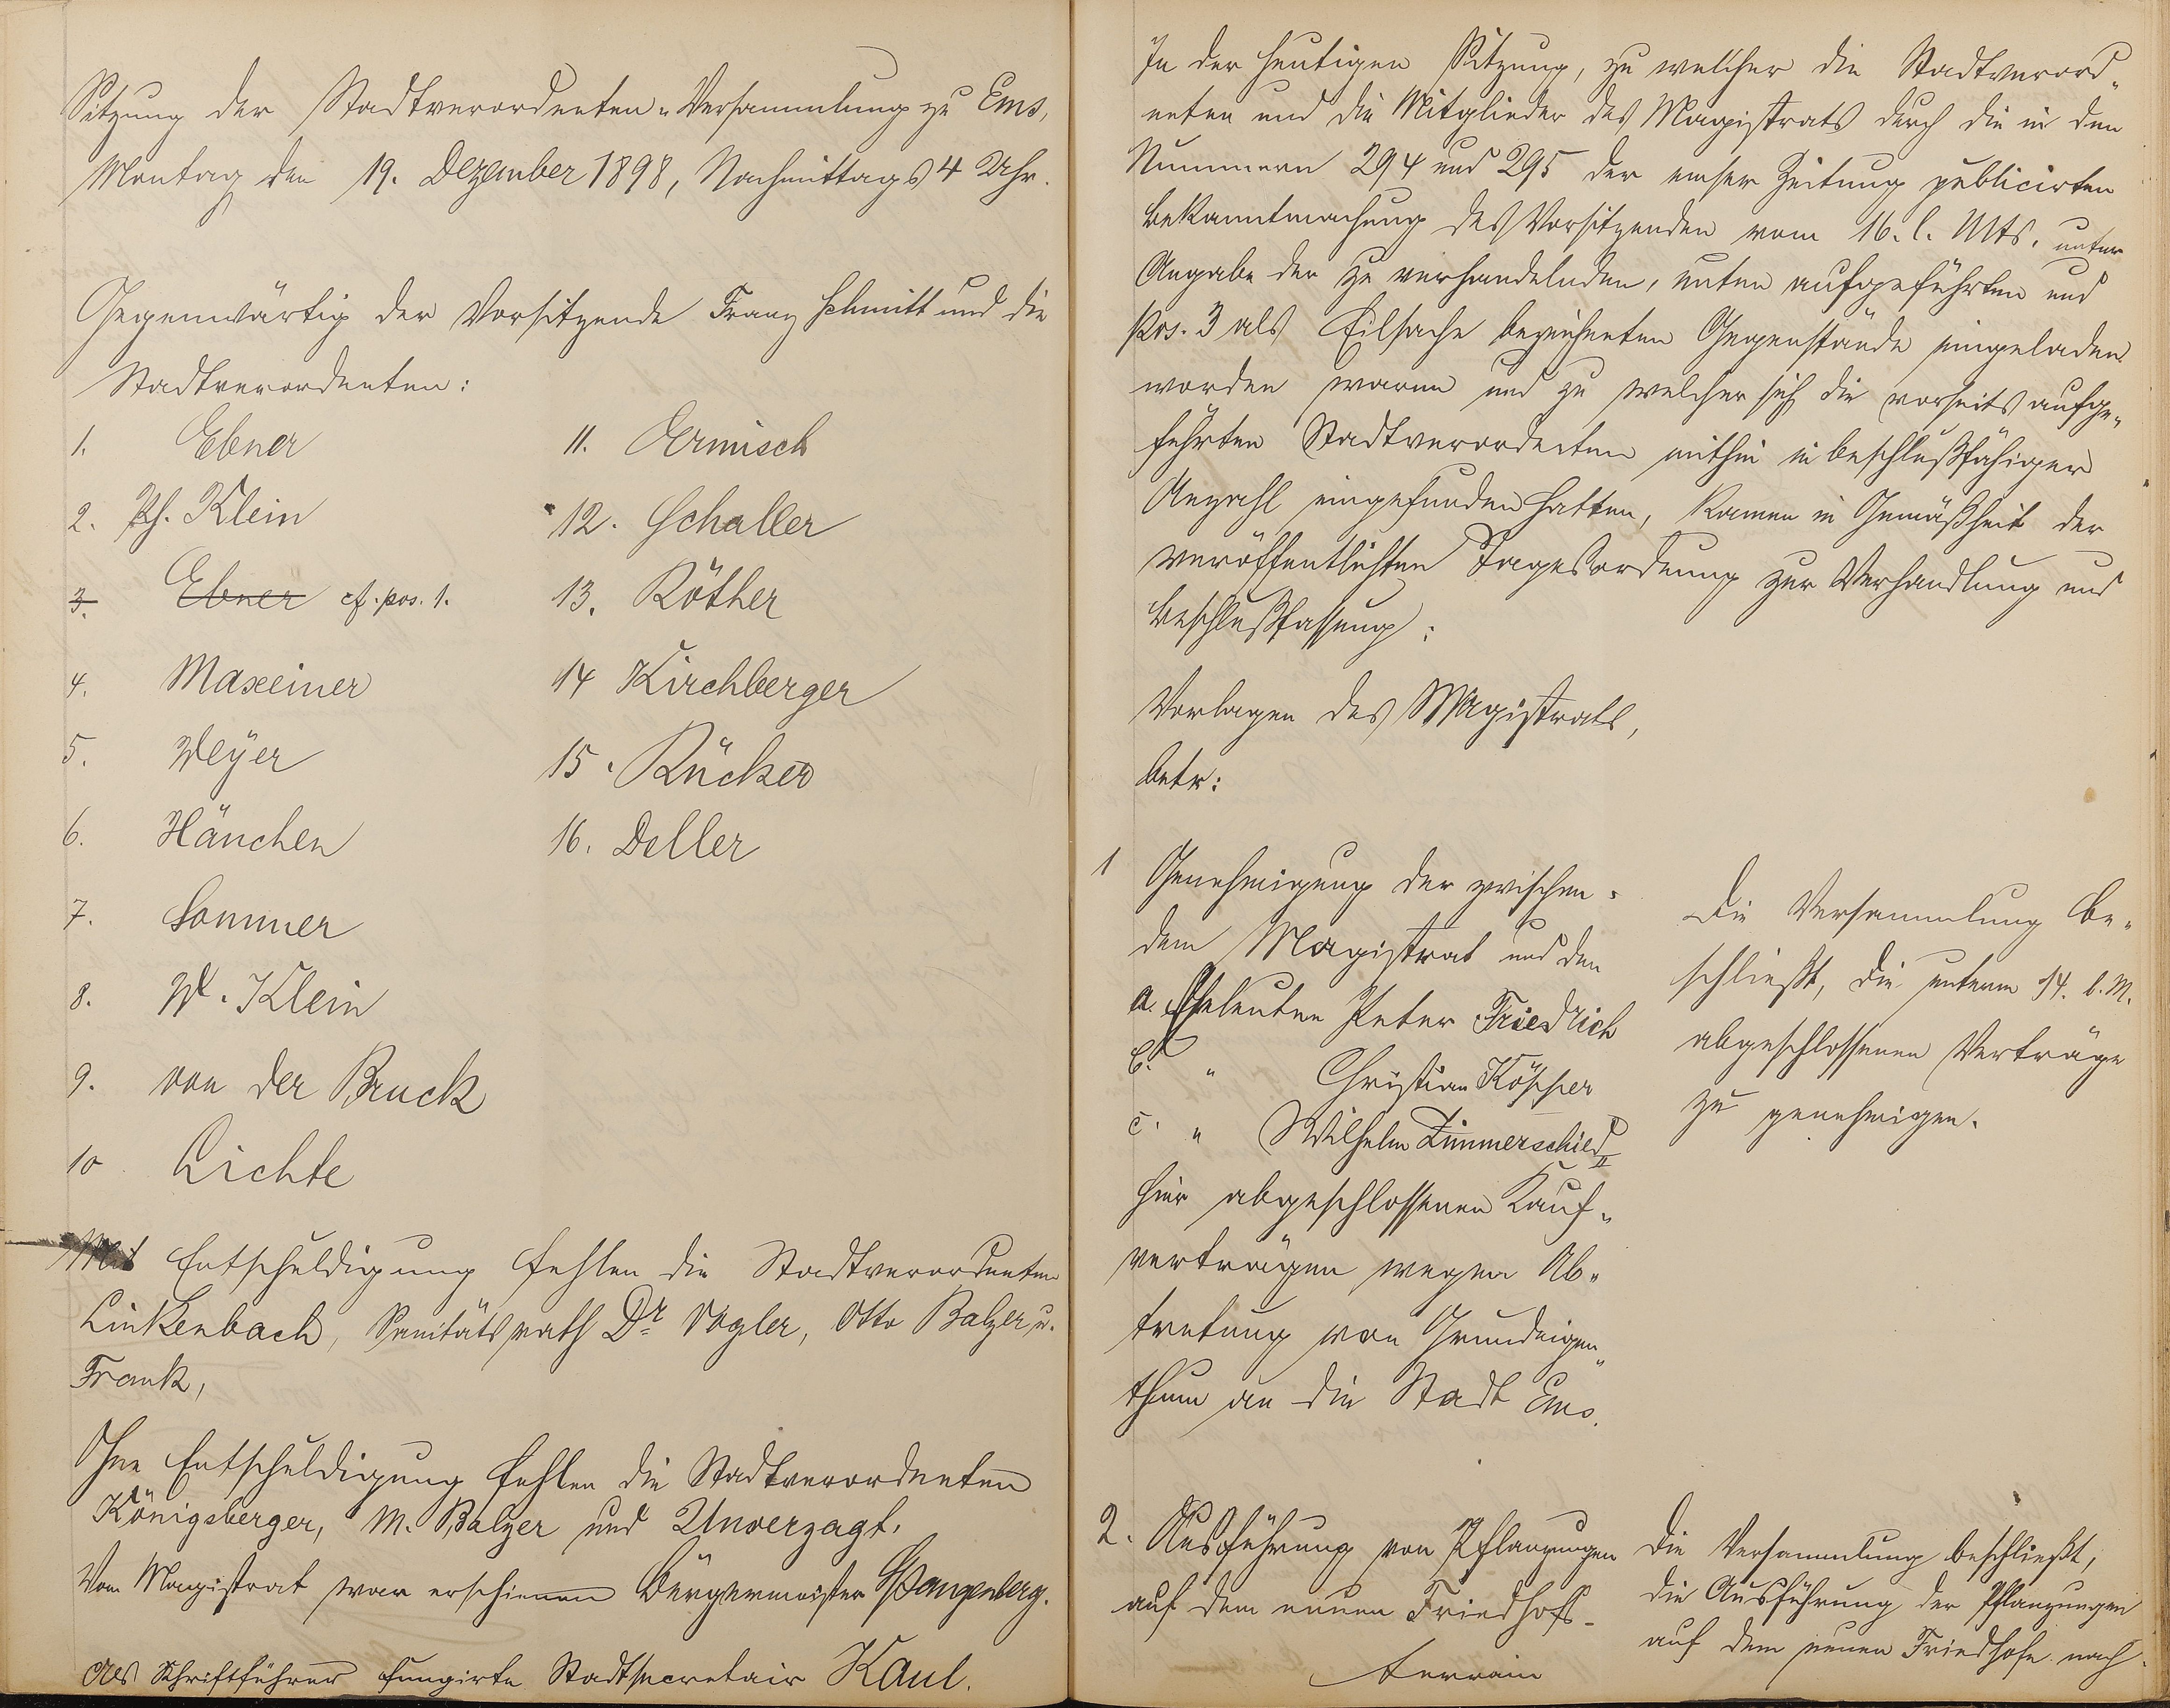 Sitzung der Stadtverordneten-Versammlung zu Ems,
Montag den 19. Dezember 1898, Nachmittags 4 Uhr.
Gegenwärtig der Vorsitzende Franz Schmitt und die
Stadtverordneten:
1. Ebner
2. Ph. Klein
3. Ebner cf. pos. 1.
4. Maxeiner
5. Weyer
6. Hänchen
7. Sommer
8. W. Klein
9. von der Bruck
10 Lichte
11. Ermisch
12. Schaller
13. Röther
14 Kirchberger
15. Rücker
16. Deller
Mit Entschuldigung fehlen die Stadtverordneten
Linkenbach, Sanitätsrath Dr Vogler, Otto Balzer u.
Frank,
Ohne Entschuldigung fehlen die Stadtverordneten
Königsberger, M. Balzer und Unverzagt.
Vom Magistrat war erschienen Bürgermeister Spangenberg.
Als Schriftführer fungirte Stadtsecretair Kaul.
In der heutigen Sitzung, zu welcher die Stadtverord-
neten und die Mitglieder des Magistrats durch die in den
Nummern 294 und 295 der emser Zeitung publicirten
Bekanntmachung des Vorsitzenden vom 16. l. Mts. unter
Angabe der zu verhandelnden, unten aufgeführten und
Pos. 3 als Eilsache bezeichneten Gegenstände eingeladen
worden waren und zu welcher sich die vorseits aufge-
führten Stadtverordneten mithin in beschlußfähiger
Anzahl eingefunden hatten, kamen in Gemäßheit der
veröffentlichten Tagesordnung zur Verhandlung und
Beschlußfassung:
Vorlagen des Magistrats,
betr:
1 Genehmigung der zwischen
dem Magistrat und den
a. Eheleuten Peter Friedrich
b. " Christian Köpper
c. " Wilhelm Zimmerschied II
hier abgeschlossenen Kauf-
verträgen wegen Ab-
tretung von Grundeigen-
thum an die Stadt Ems.
Die Versammlung be-
schließt, die unterm 14. l. M.
abgeschlossenen Verträge
zu genehmigen.
2. Ausführung von Pflanzungen
auf dem neuen Friedhofs-
terrain
Die Versammlung beschließt,
die Ausführung der Pflanzungen
auf dem neuen Friedhofe nach